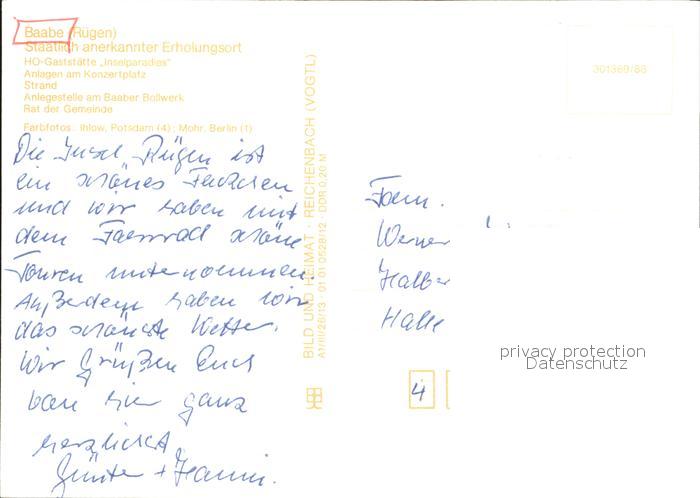 Baabe (Rügen)
Staatlich anerkannter Erholungsort
HO-Gaststätte „Inselparadies"
Anlagen am Konzertplatz
Strand
Anlegestelle am Baaber Bollwerk
Rat der Gemeinde
Farbfotos: Ihlow, Potsdam (4); Mohr, Berlin (1)
Die Insel Rügen ist
ein schönes Fleckchen
und wir haben mit
dem Fahrrad schöne
Touren unternommen.
Außerdem haben wir
das schönste Wetter.
Wir grüßen Euch
von hier ganz
herzlichst
Günter + Hanni.
BILD UND HEIMAT · REICHENBACH (VOGTL)
A1/III/26/13 01 01 0528/12 · DDR 0,20 M
301369/86
Fam.
Werner
Halber
Halle
4
privacy protection
Datenschutz